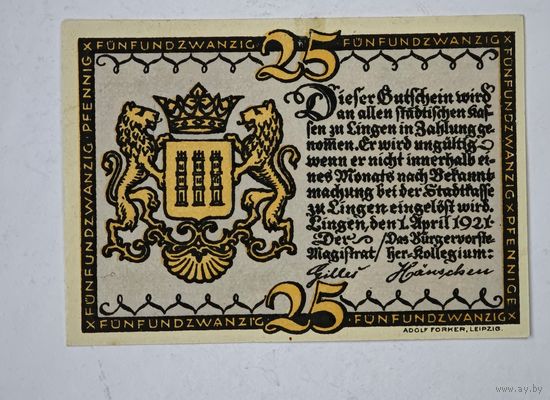 ×FÜNFUNDZWANZIG 25 FÜNFUNDZWANZIG×
FÜNFUNDZWANZIG·PFENNIG
Dieser Gutschein wird
an allen städtischen Kas-
sen zu Lingen in Zahlung ge-
nom̅en. Er wird ungültig
wenn er nicht innerhalb ei-
nes Monats nach Bekannt
machung bei der Stadtkasse
zu Lingen eingelöst wird.
Lingen, den 1. April 1921.
Der / Das Bürgervorste-
Magistrat / her-Kollegium:
Gilles Hänschen
FÜNFUNDZWANZIG×PFENNIGE
×FÜNFUNDZWANZIG 25 FÜNFUNDZWANZIG×
ADOLF FORKER, LEIPZIG.
www.ay.by